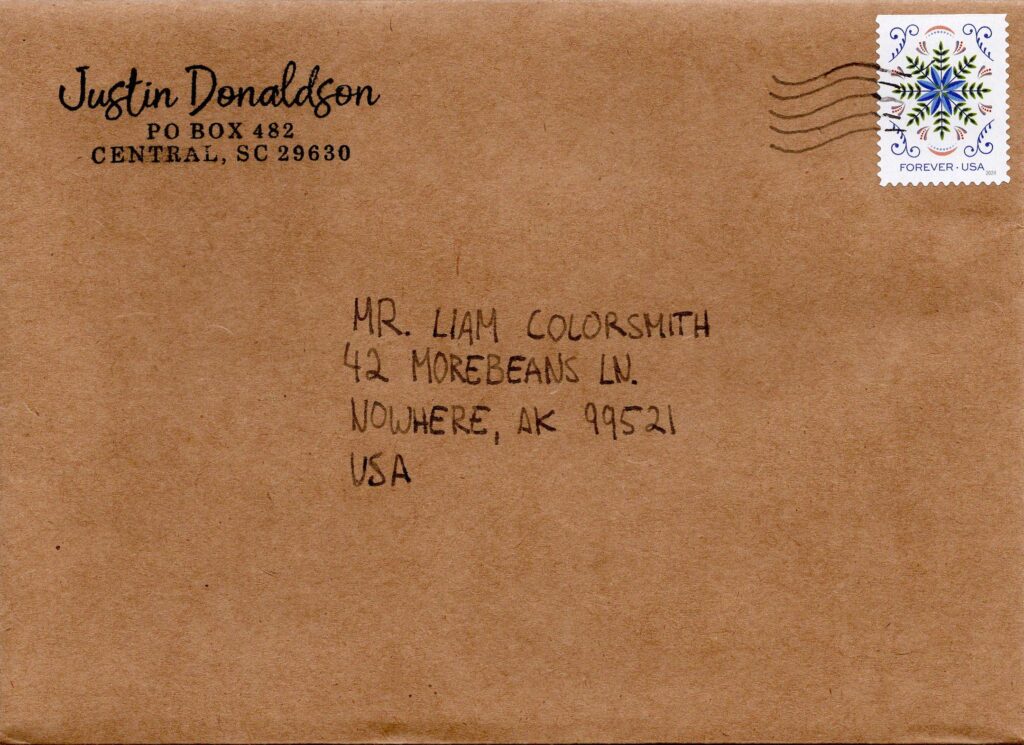 Justin Donaldson
PO BOX 482
CENTRAL, SC 29630
FOREVER · USA
2020
MR. LIAM COLORSMITH
42 MOREBEANS LN.
NOWHERE, AK 99521
USA